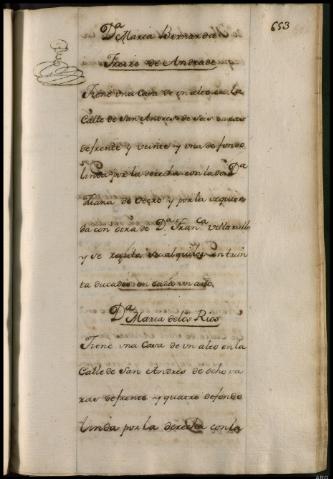 653
Dª
Maria Bernarda
Freire de Andrade
Tiene una Casa de un alto en la
Calle de San Andres de seis varas
de frente y veinte y una de fondo
linda por la derecha con la de Dª
de Castro y por la izquier
da con otra de Dⁿ Franᶜᵒ Villardillo
y se regula su alquiler en trein
ta ducados en cada un año.
Dª
Maria de los Rios
Tiene una Casa de un alto en la
Calle de San Andres de ocho va
ras de frente y quatro de fondo
linda por la derecha con la